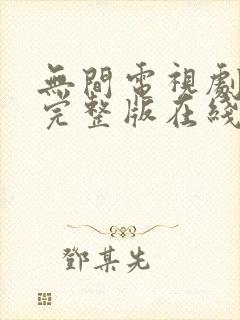 無間電視劇
完整版在綫
鄧某先